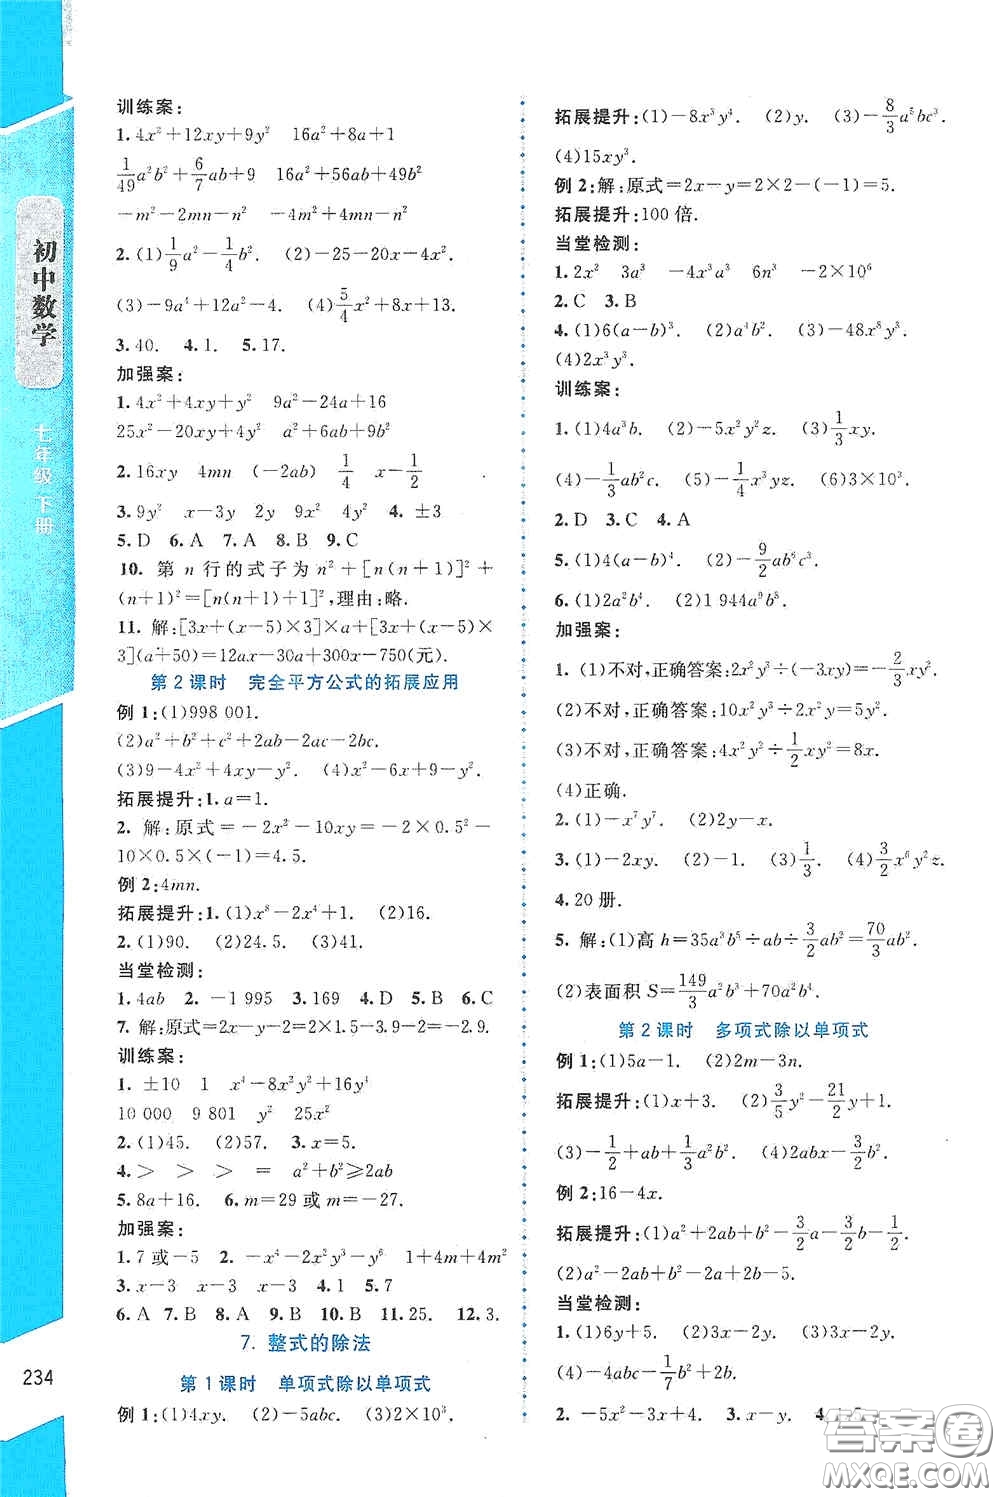 初中数学
七年级 下册
234
训练案:
1. 4x²+12xy+9y² 16a²+8a+1
1/49a²b²+6/7ab+9 16a²+56ab+49b²
-m²-2mn-n² -4m²+4mn-n²
2. (1)1/9a²-1/4b². (2)-25-20x-4x².
(3)-9a⁴+12a²-4. (4)5/4x²+8x+13.
3. 40. 4. 1. 5. 17.
加强案:
1. 4x²+4xy+y² 9a²-24a+16
25x²-20xy+4y² a²+6ab+9b²
2. 16xy 4mn (-2ab) 1/4 -1/2
3. 9y² x-3y 2y 9x² 4y² 4. ±3
5. D 6. A 7. A 8. B 9. C
10. 第 n 行的式子为 n²+[n(n+1)]²+
(n+1)²=[n(n+1)+1]²,理由:略.
11. 解:[3x+(x-5)×3]×a+[3x+(x-5)×
3](a+50)=12ax-30a+100x-750(元).
第 2 课时 完全平方公式的拓展应用
例 1:(1)998 001.
(2)a²+b²+c²+2ab-2ac-2bc.
(3)9-4x²+4xy-y². (4)x²-6x+9-y².
拓展提升:1. a=1.
2. 解:原式=-2x²-10xy=-2×0.5²-
10×0.5×(-1)=4.5.
例 2:4mn.
拓展提升:1. (1)x⁸-2x⁴+1. (2)16.
2. (1)90. (2)24.5. (3)41.
当堂检测:
1. 4ab 2. -1 995 3. 169 4. D 5. B 6. C
7. 解:原式=2x-y-2=2×1.5-1.9-2=-2.9.
训练案:
1. ±10 1 x⁴-8x²y²+16y⁴
10 000 9 801 y² 25x²
2. (1)45. (2)57. 3. x=5.
4. > > > = a²+b²≥2ab
5. 8a+16. 6. m=29 或 m=-27.
加强案:
1. 7 或-5 2. -x⁴-2x²y³-y⁶ 1+4m+4m²
3. x-3 x-3 x-3 4. 1 5. 7
6. A 7. B 8. A 9. B 10. B 11. 25. 12. 3.
7. 整式的除法
第 1 课时 单项式除以单项式
例 1:(1)4xy. (2)-5abc. (3)2×10³.
拓展提升:(1)-8x³y⁴. (2)y. (3)-8/3a⁵bc³.
(4)15xy³.
例 2:解:原式=2x-y=2×2-(-1)=5.
拓展提升:100 倍.
当堂检测:
1. 2x² 3a³ -4x³y² 6n³ -2×10⁶
2. C 3. B
4. (1)6(a-b)³. (2)4a²b². (3)-48x⁸y³.
(4)2x³y³.
训练案:
1. (1)4a³b. (2)-5x²y²z. (3)1/3xy.
(4)-1/3ab²c. (5)-1/4x³yz. (6)3×10³.
2. D 3. C 4. A
5. (1)4(a-b)⁴. (2)-9/2ab⁶c³.
6. (1)2a²b⁴. (2)1 944a⁹b⁸.
加强案:
1. (1)不对,正确答案:2x²y³÷(-3xy)=-2/3xy².
(2)不对,正确答案:10x²y³÷2x²y=5y².
(3)不对,正确答案:4x²y²÷1/2xy²=8x.
(4)正确.
2. (1)-x⁷y⁷. (2)2y-x.
3. (1)-2xy. (2)-1. (3)1/3. (4)3/2x⁶y²z.
4. 20 册.
5. 解:(1)高 h=35a³b⁵÷ab÷3/2ab²=70/3ab².
(2)表面积 S=149/3a²b³+70a²b⁴.
第 2 课时 多项式除以单项式
例 1:(1)5a-1. (2)2m-3n.
拓展提升:(1)x+3. (2)3/5y²-21/2y+1.
(3)-1/2+ab+1/3a²b². (4)2abx-3/2b².
例 2:16-4x.
拓展提升:(1)a²+2ab+b²-3/2a-3/2b-1/2.
(2)a²-2ab+b²-2a+2b-8.
当堂检测:
1. (1)6y+5. (2)-9x+1. (3)-2x²+x.
(4)-4abc-1/7b²+2.
2. -5x²-3x+4. 3. x-y.
答案圈
MXQE.COM